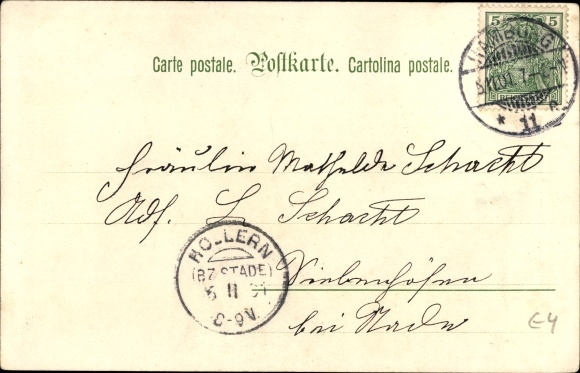 5 5
Carte postale. Postkarte. Cartolina postale.
HAMBURG
* 11
Fräulein Mathilde Schacht
Adr. L Schacht
HOLLERN
(BZ STADE)
11
8-9V.
Siebenhöfen
bei Stade
E4